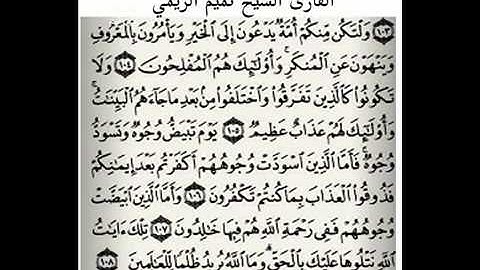 القارئ الشيخ تميم الريمي
١٠٣ وَلْتَكُن مِّنكُمْ أُمَّةٌ يَدْعُونَ إِلَى ٱلْخَيْرِ وَيَأْمُرُونَ بِٱلْمَعْرُوفِ
وَيَنْهَوْنَ عَنِ ٱلْمُنكَرِ ۚ وَأُو۟لَـٰٓئِكَ هُمُ ٱلْمُفْلِحُونَ ١٠٤ وَلَا
تَكُونُوا۟ كَٱلَّذِينَ تَفَرَّقُوا۟ وَٱخْتَلَفُوا۟ مِنۢ بَعْدِ مَا جَآءَهُمُ ٱلْبَيِّنَـٰتُ ۚ
وَأُو۟لَـٰٓئِكَ لَهُمْ عَذَابٌ عَظِيمٌ ١٠٥ يَوْمَ تَبْيَضُّ وُجُوهٌ وَتَسْوَدُّ
وُجُوهٌ ۚ فَأَمَّا ٱلَّذِينَ ٱسْوَدَّتْ وُجُوهُهُمْ أَكَفَرْتُم بَعْدَ إِيمَـٰنِكُمْ
فَذُوقُوا۟ ٱلْعَذَابَ بِمَا كُنتُمْ تَكْفُرُونَ ١٠٦ وَأَمَّا ٱلَّذِينَ ٱبْيَضَّتْ
وُجُوهُهُمْ فَفِى رَحْمَةِ ٱللَّهِ هُمْ فِيهَا خَـٰلِدُونَ ١٠٧ تِلْكَ ءَايَـٰتُ
ٱللَّهِ نَتْلُوهَا عَلَيْكَ بِٱلْحَقِّ ۗ وَمَا ٱللَّهُ يُرِيدُ ظُلْمًا لِّلْعَـٰلَمِينَ ١٠٨